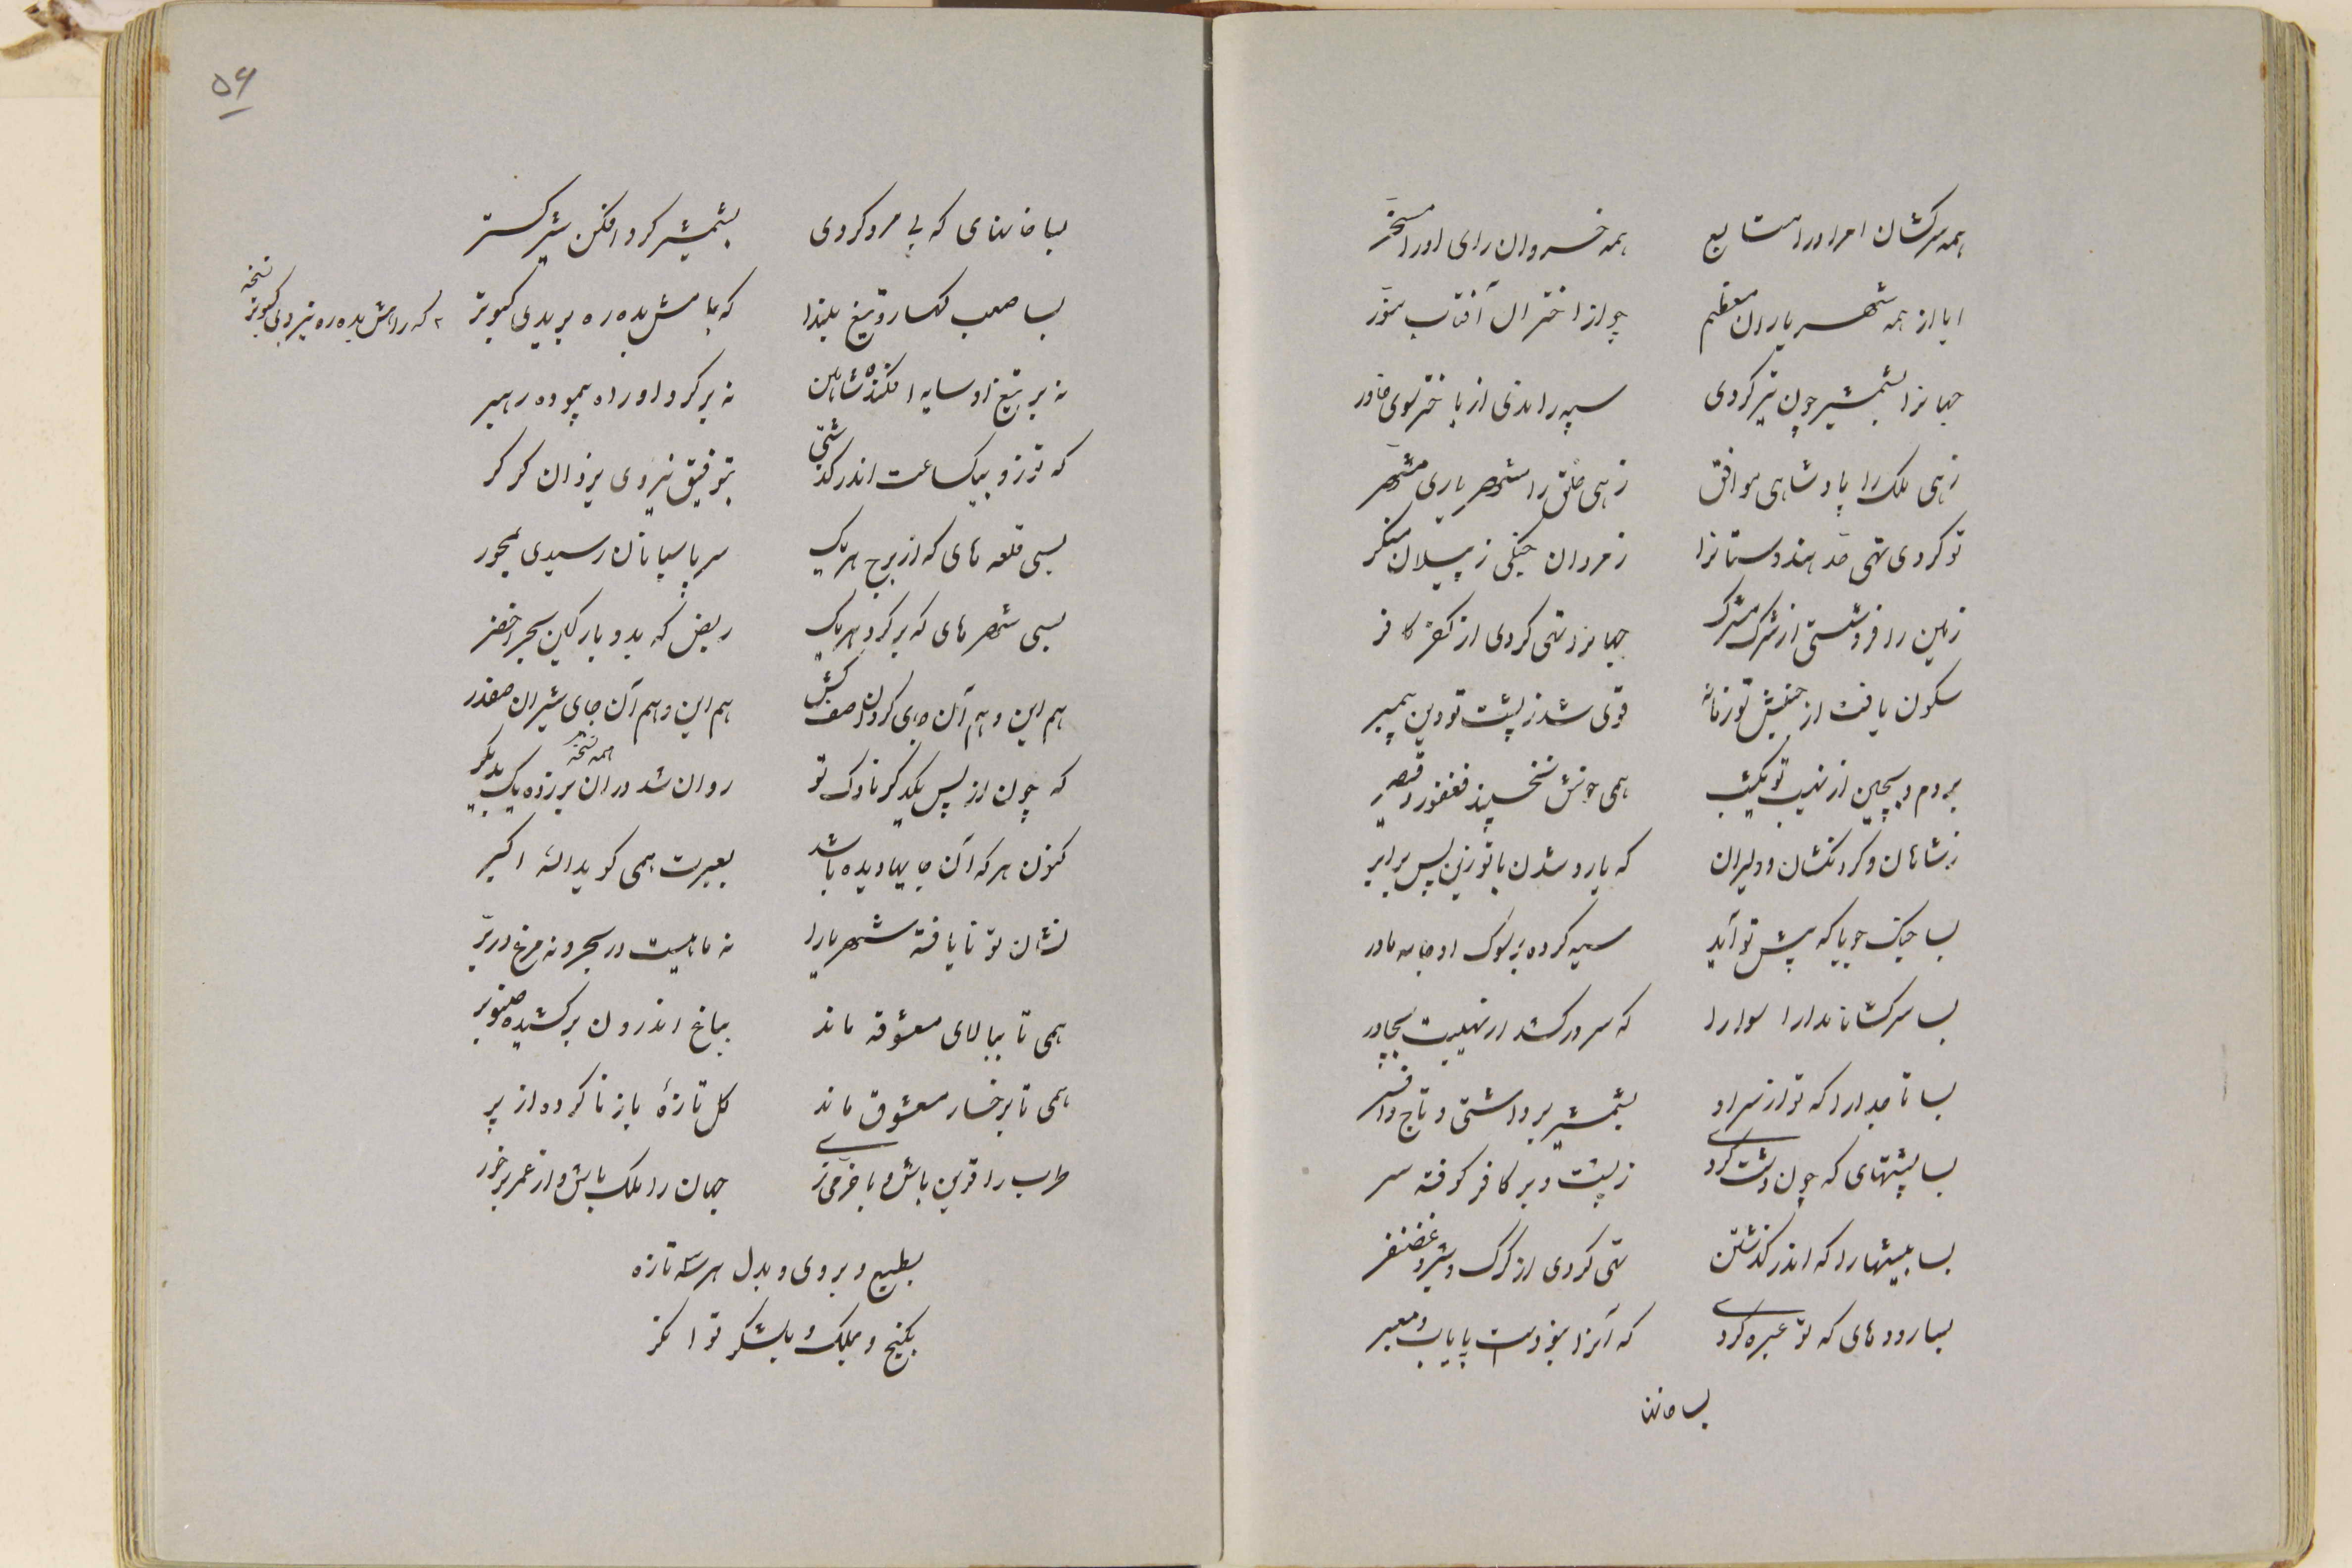 همه سرکشان امر او را متابع همه خسروان رای او را مسخر
ایا از همه شهریاران معظم چو از اختران آفتاب منور
جهانرا بشمشیر چون تیر کردی سپه راندی از باختر سوی خاور
زهی ملک را پادشاهی موافق زهی خلق را شهریاری مشهر
تو کردی تهی حد هندوستانرا ز مردان جنگی ز پیلان منکر
زمین را فروشستی از شرک مشرک جهانرا تهی کردی از کفر کافر
سکون یافت از جنبش تو زمانه قوی شد ز پشت تو دین پیمبر
بروم و بچین از نهیب تو یکشب همی خوش نخسپند فغفور و قیصر
ز شاهان و گردنکشان و دلیران که یارد شدن با تو زین پس برابر
بسا جنگ جویا که پیش تو آید سیه کرده بر سوک او جامه مادر
بسا سرکشا نامدارا سوارا که سر درکشد از نهیبت بچادر
بسا تاجدارا که تو از سر او بشمشیر برداشتی تاج و افسر
بسا پشتهای که چون دشت کردی ز پشت و بر کافر کوفته سر
بسا بیشها را که اندر گذشتن تهی کردی از گرگ و شیر و غضنفر
بسا رودهای که تو عبره کردی که آنرا نبودست پایاب و معبر
بسا خانها
۵۶
بسا خانهای که بی مرد کردی بشمشیر گرد افکن شیر گستر
بسا صعب کهسار و تیغ بلندا که بامش بده ره بریدی کبوتر
۲ که راهش بده ره نبردی کبوتر نسخه
نه بر تیغ او سایه افکنده شاهین نه بر گرد او راه پیموده رهبر
که تو زو بیکساعت اندر گذشتی بتوفیق و نیروی یزدان گرگر
بسی قلعه های که از برج هر یک سر پاسبانان رسیدی بمحور
بسی شهرهای که بر گرد هر یک ربض که بد و بارگین بحر اخضر
هم این و هم آن جای گردان صف کش هم این و هم آن جای شیران صفدر
که چون از پس یکدگر ناوک تو روان شد در آن بر زده یک بدیگر
همه نسخه
کنون هر که آن جایها دیده باشد بعبرت همی گوید الله اکبر
نشان تو نایافته شهریارا نه ماهیست در بحر و نه مرغ در بر
همی تا ببالای معشوقه ماند بباغ اندرون برکشیده صنوبر
همی تا برخسار معشوق ماند گل تازۀ باز ناکرده از پر
طرب را قرین باش و با خرمی زی جهان را ملک باش و از عمر برخور
بطبع و بروی و بدل هر سه تازه
بگنج و بملک و بلشکر توانگر